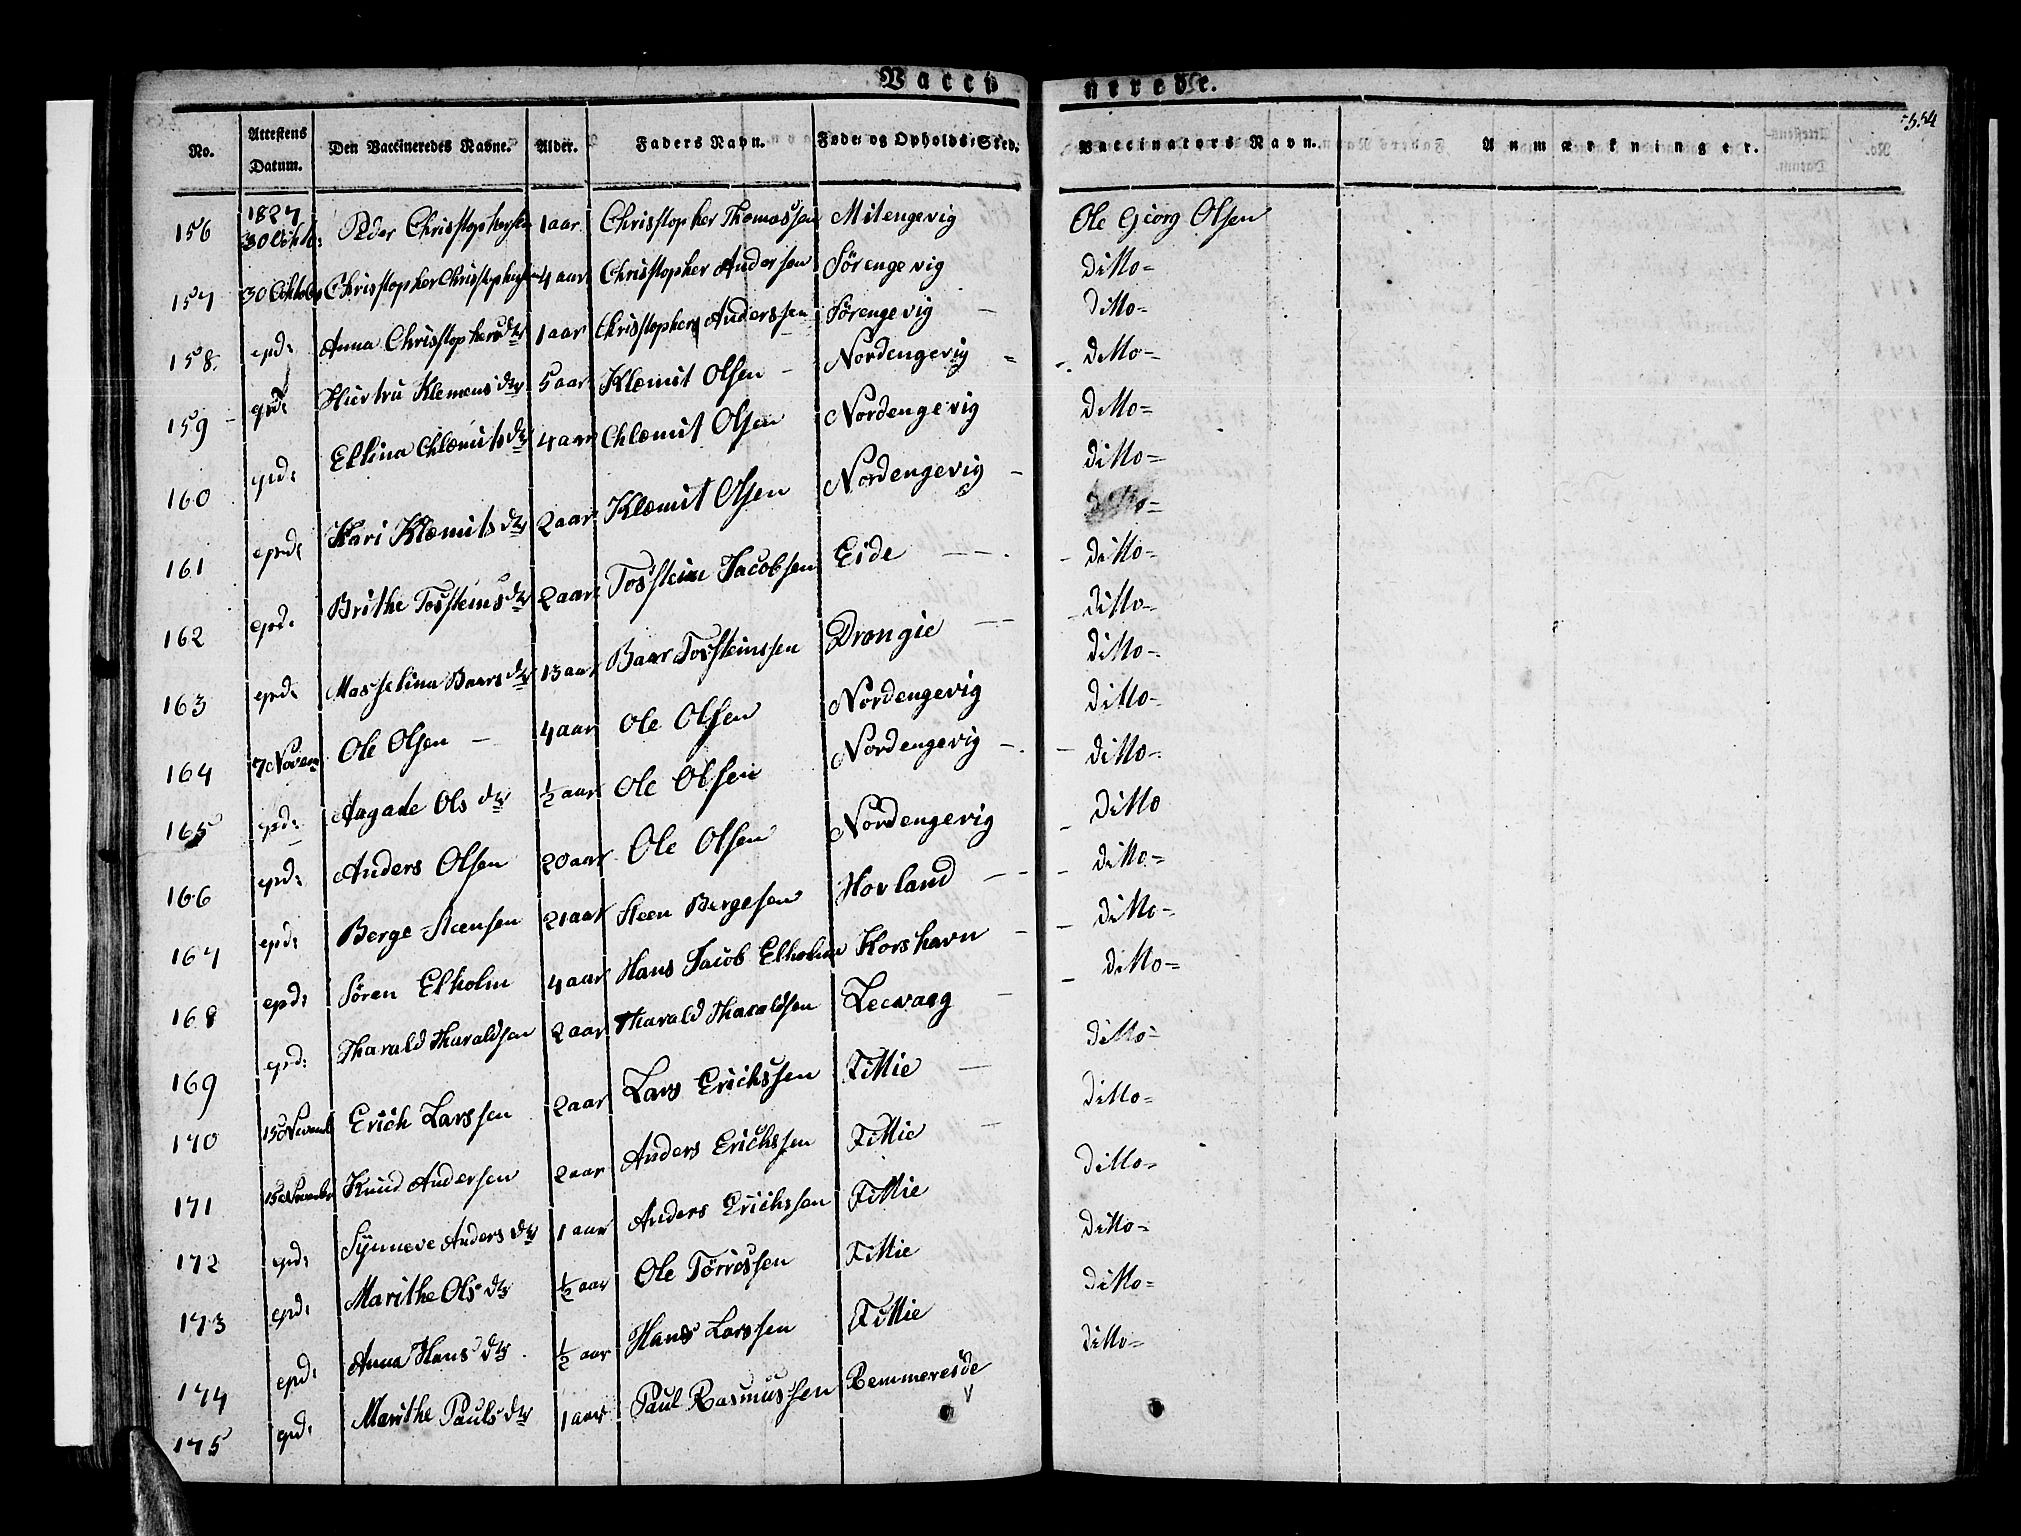 Vacci nerede.
554
No. Attestens Datum. Den Vaccineredes Navne. Alder. Faders Navn. Føde- og Opholds-Sted. Vaccinators Navn. Anmærkninger.
1827
156 30 Peder 1 aar Christopher Thomassen Mitengevig Ole Georg Olsen
157 30 Oktober Christopher 4 aar Christopher Andersen Sörengevig ditto-
158. epd: Anna Christophersdtr 1 aar Christophers Anderssen Sörengevig ditto-
159 epd: Klemens dtr 5 aar Klemit Olsen Nordengevig ditto-
160 epd: Ellina Chlemits dtr 4 aar Chlemit Olsen Nordengevig ditto-
161 epd: Kari Klemits dtr 2 aar Klemit Olsen Nordengevig ditto-
162 epd: Brithe Tossteins dtr 2 aar Tosstein Jacobsen Eide ditto-
163 epd: Masselina Baars dtr 13 aar Baar Tossteinssen Drongie ditto-
164 7 Novem Ole Olsen 4 aar Ole Olsen Nordengevig ditto-
165 epd: Aagade Ols dtr ½ aar Ole Olsen Nordengevig ditto-
166 epd: Anders Olsen 20 aar Ole Olsen Nordengevig ditto-
167 epd: Berge Steensen 21 aar Steen Bergesen Hovland ditto
168 epd: Sören Elholm 4 aar Hans Jacob Elholm Korshavn ditto-
169 epd: Tharald Tharaldsen 2 aar Tharald Tharaldsen Leevaag ditto-
170 15 Novemb Erich Larssen 2 aar Lars Erichssen Tittie ditto-
171 15 November Knud Andersen 2 aar Anders Erichssen Tittie ditto-
172 epd: Synneve Anders dtr 1 aar Anders Erichssen Tittie ditto-
173 epd: Marithe Ols dtr ½ aar Ole Törrissen Tittie ditto-
174 epd: Anna Hans dtr ½ aar Hans Larssen Tittie ditto-
175 epd: Marithe Pauls dtr 1 aar Paul Rasmussen Remmereside ditto-
ditto-